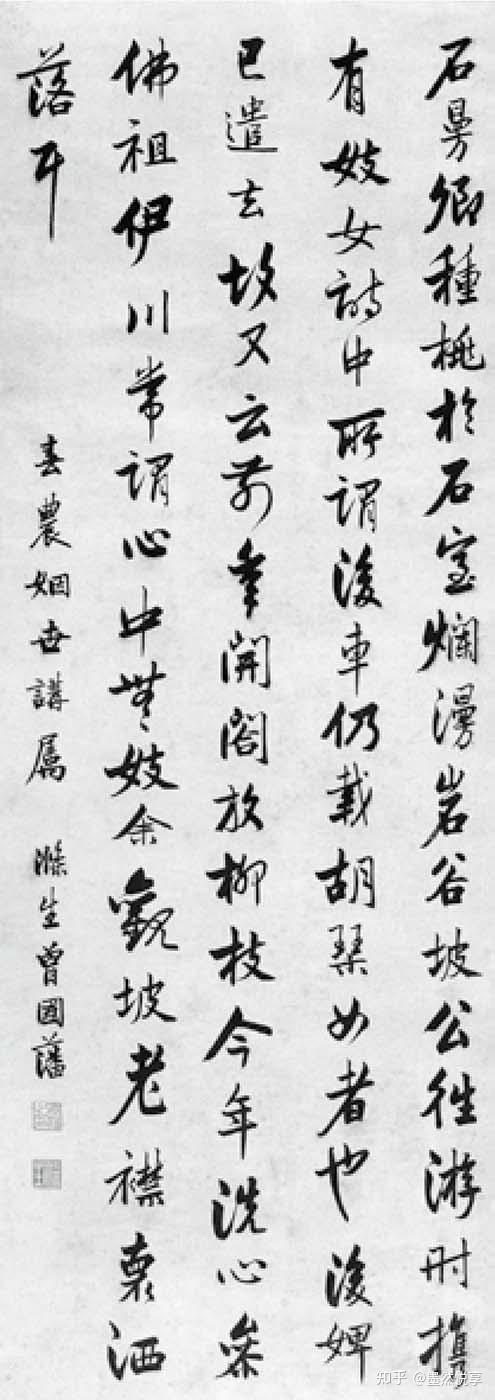 石曼卿種桃於石室爛漫岩谷坡公往游时携
有妓女詩中所謂後車仍載胡琴女者也後婢
已遣去故又云前年開閤放柳枝今年洗心参
佛祖伊川常謂心中無妓余觀坡老襟褱洒
落耳
春農姻世講屬 滌生曾國藩
知乎 @墨然悦享